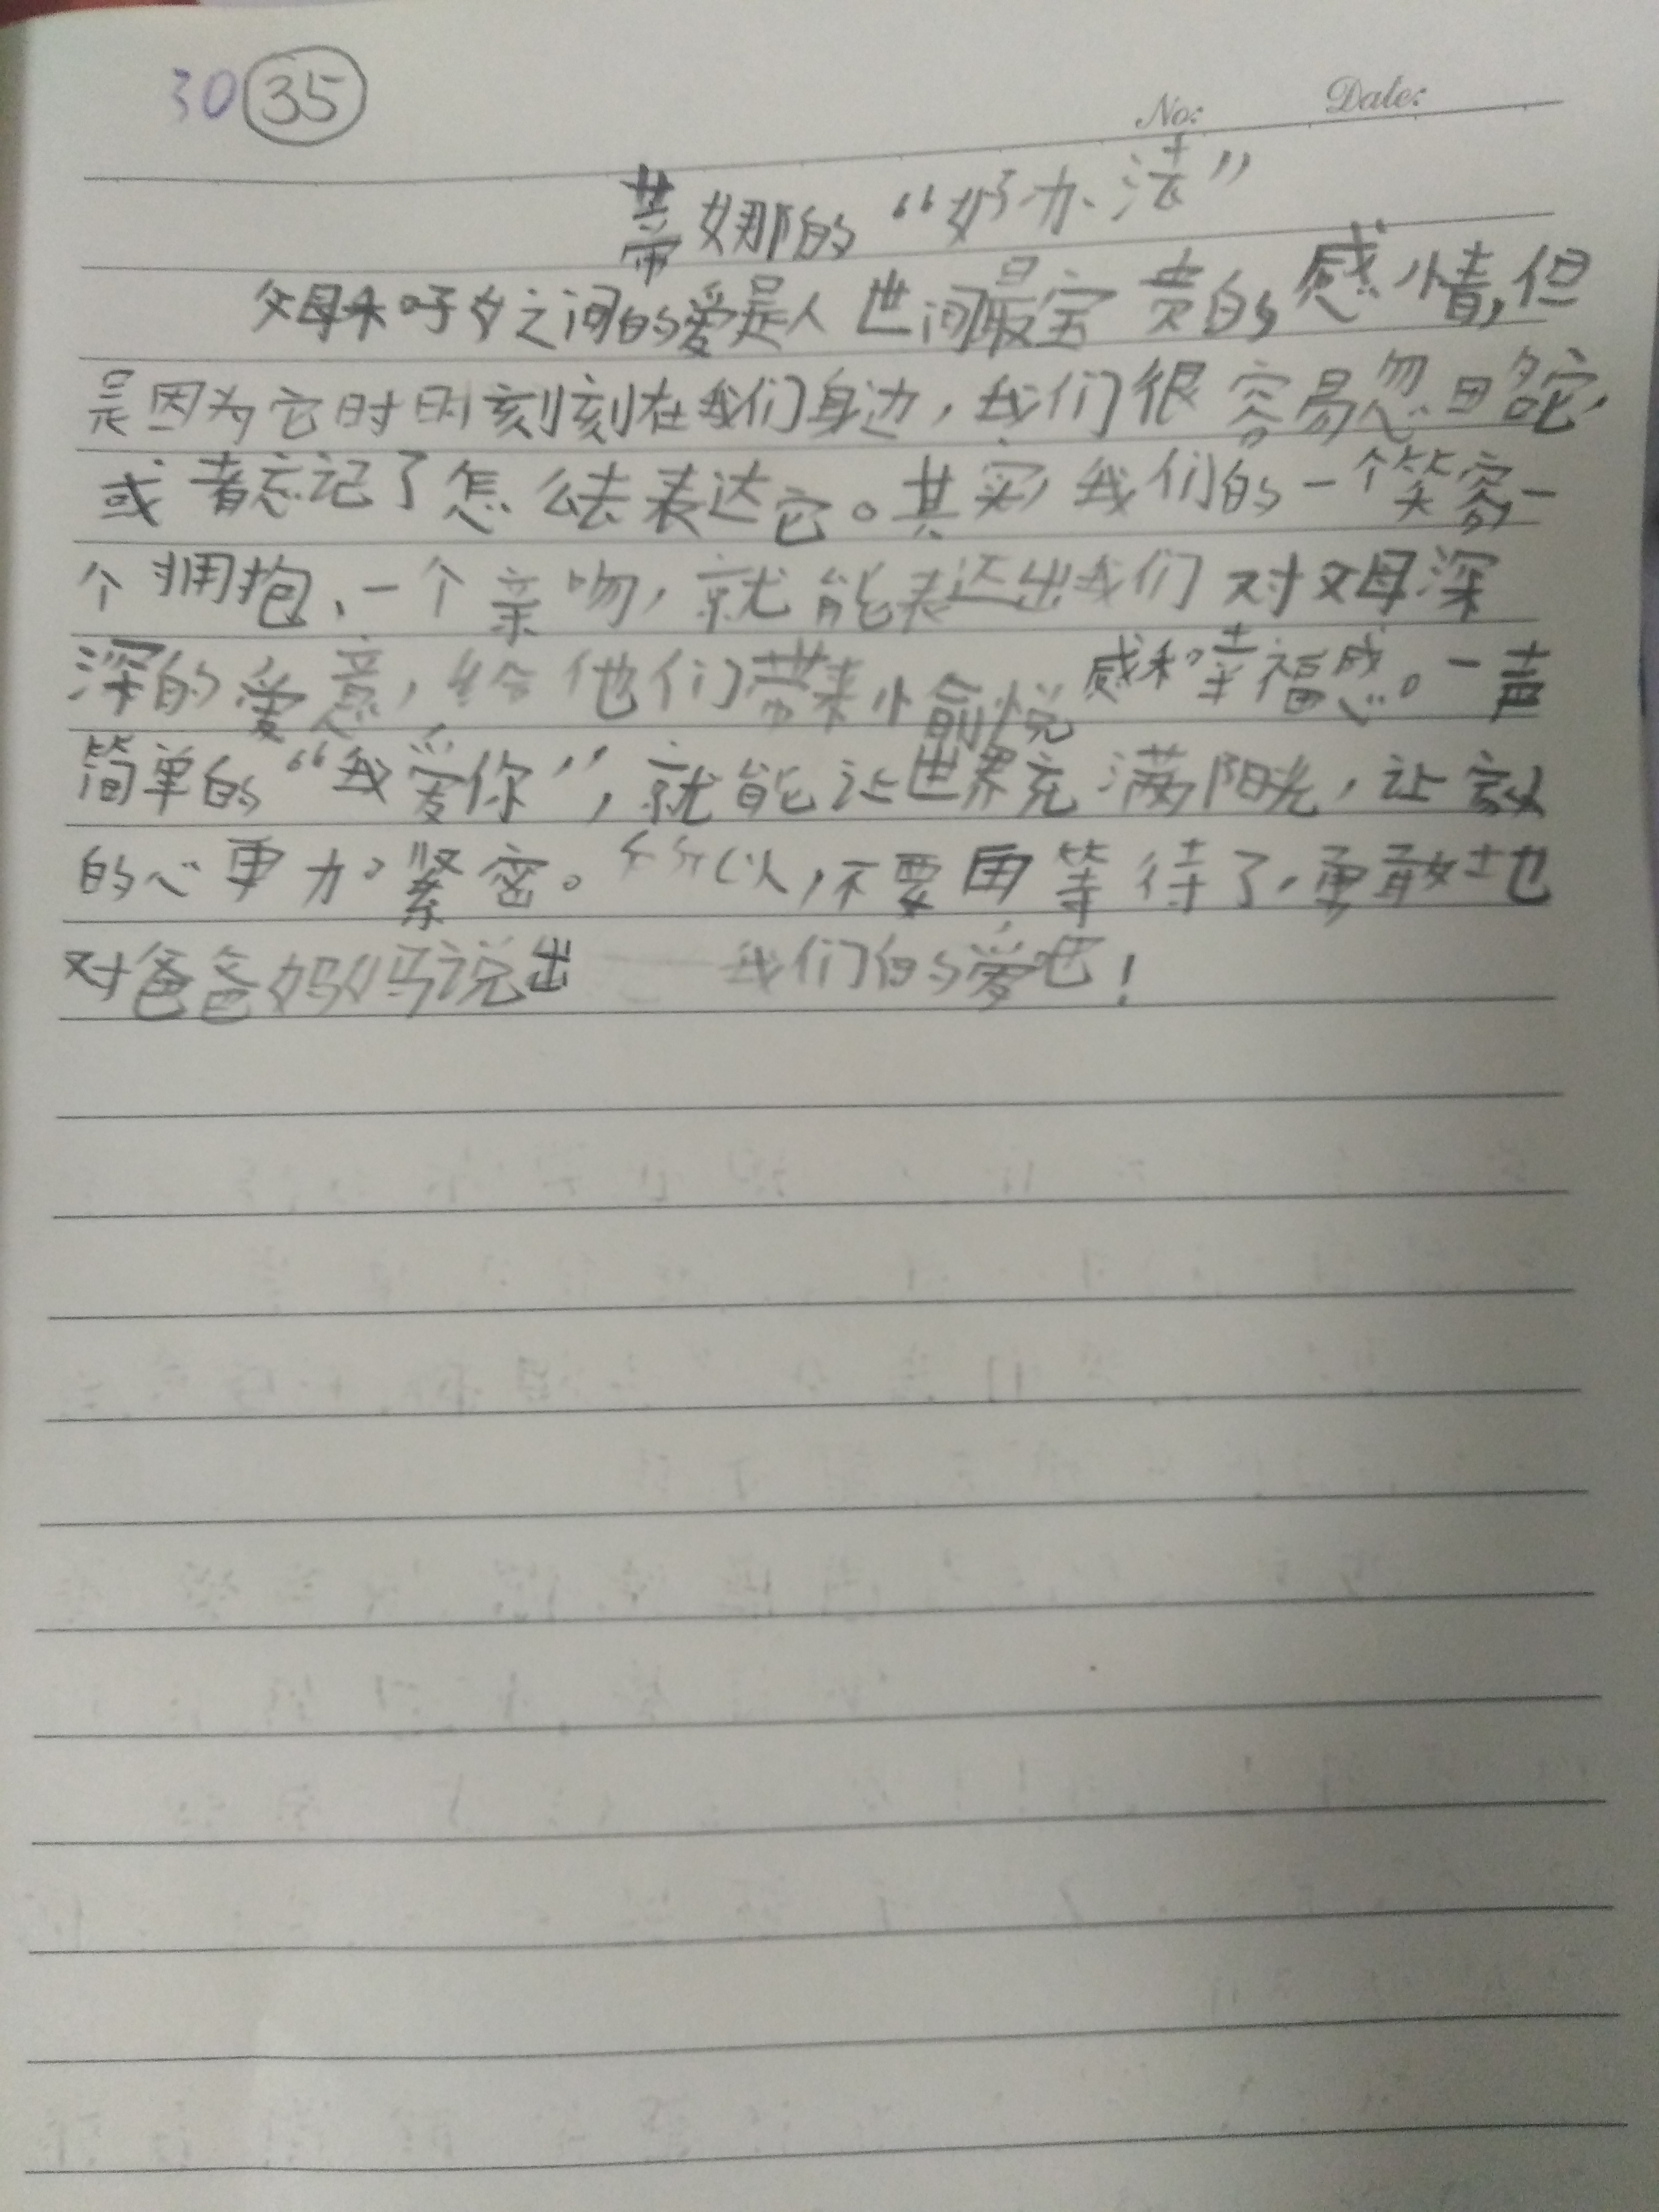 30 35
No: Date:
蒂娜的“好办法”
父母和子女之间的爱是人世间最宝贵的感情,但
是因为它时时刻刻在我们身边,我们很容易忽略它,
或者忘记了怎么去表达它。其实,我们的一个笑容、一
个拥抱、一个亲吻,就能表达出我们对父母深
深的爱意,给他们带来愉悦感和幸福感。一声
简单的“我爱你”,就能让世界充满阳光,让
的心更加紧密。所以,不要再等待了,勇敢地
对爸爸妈妈说出我们的爱吧!